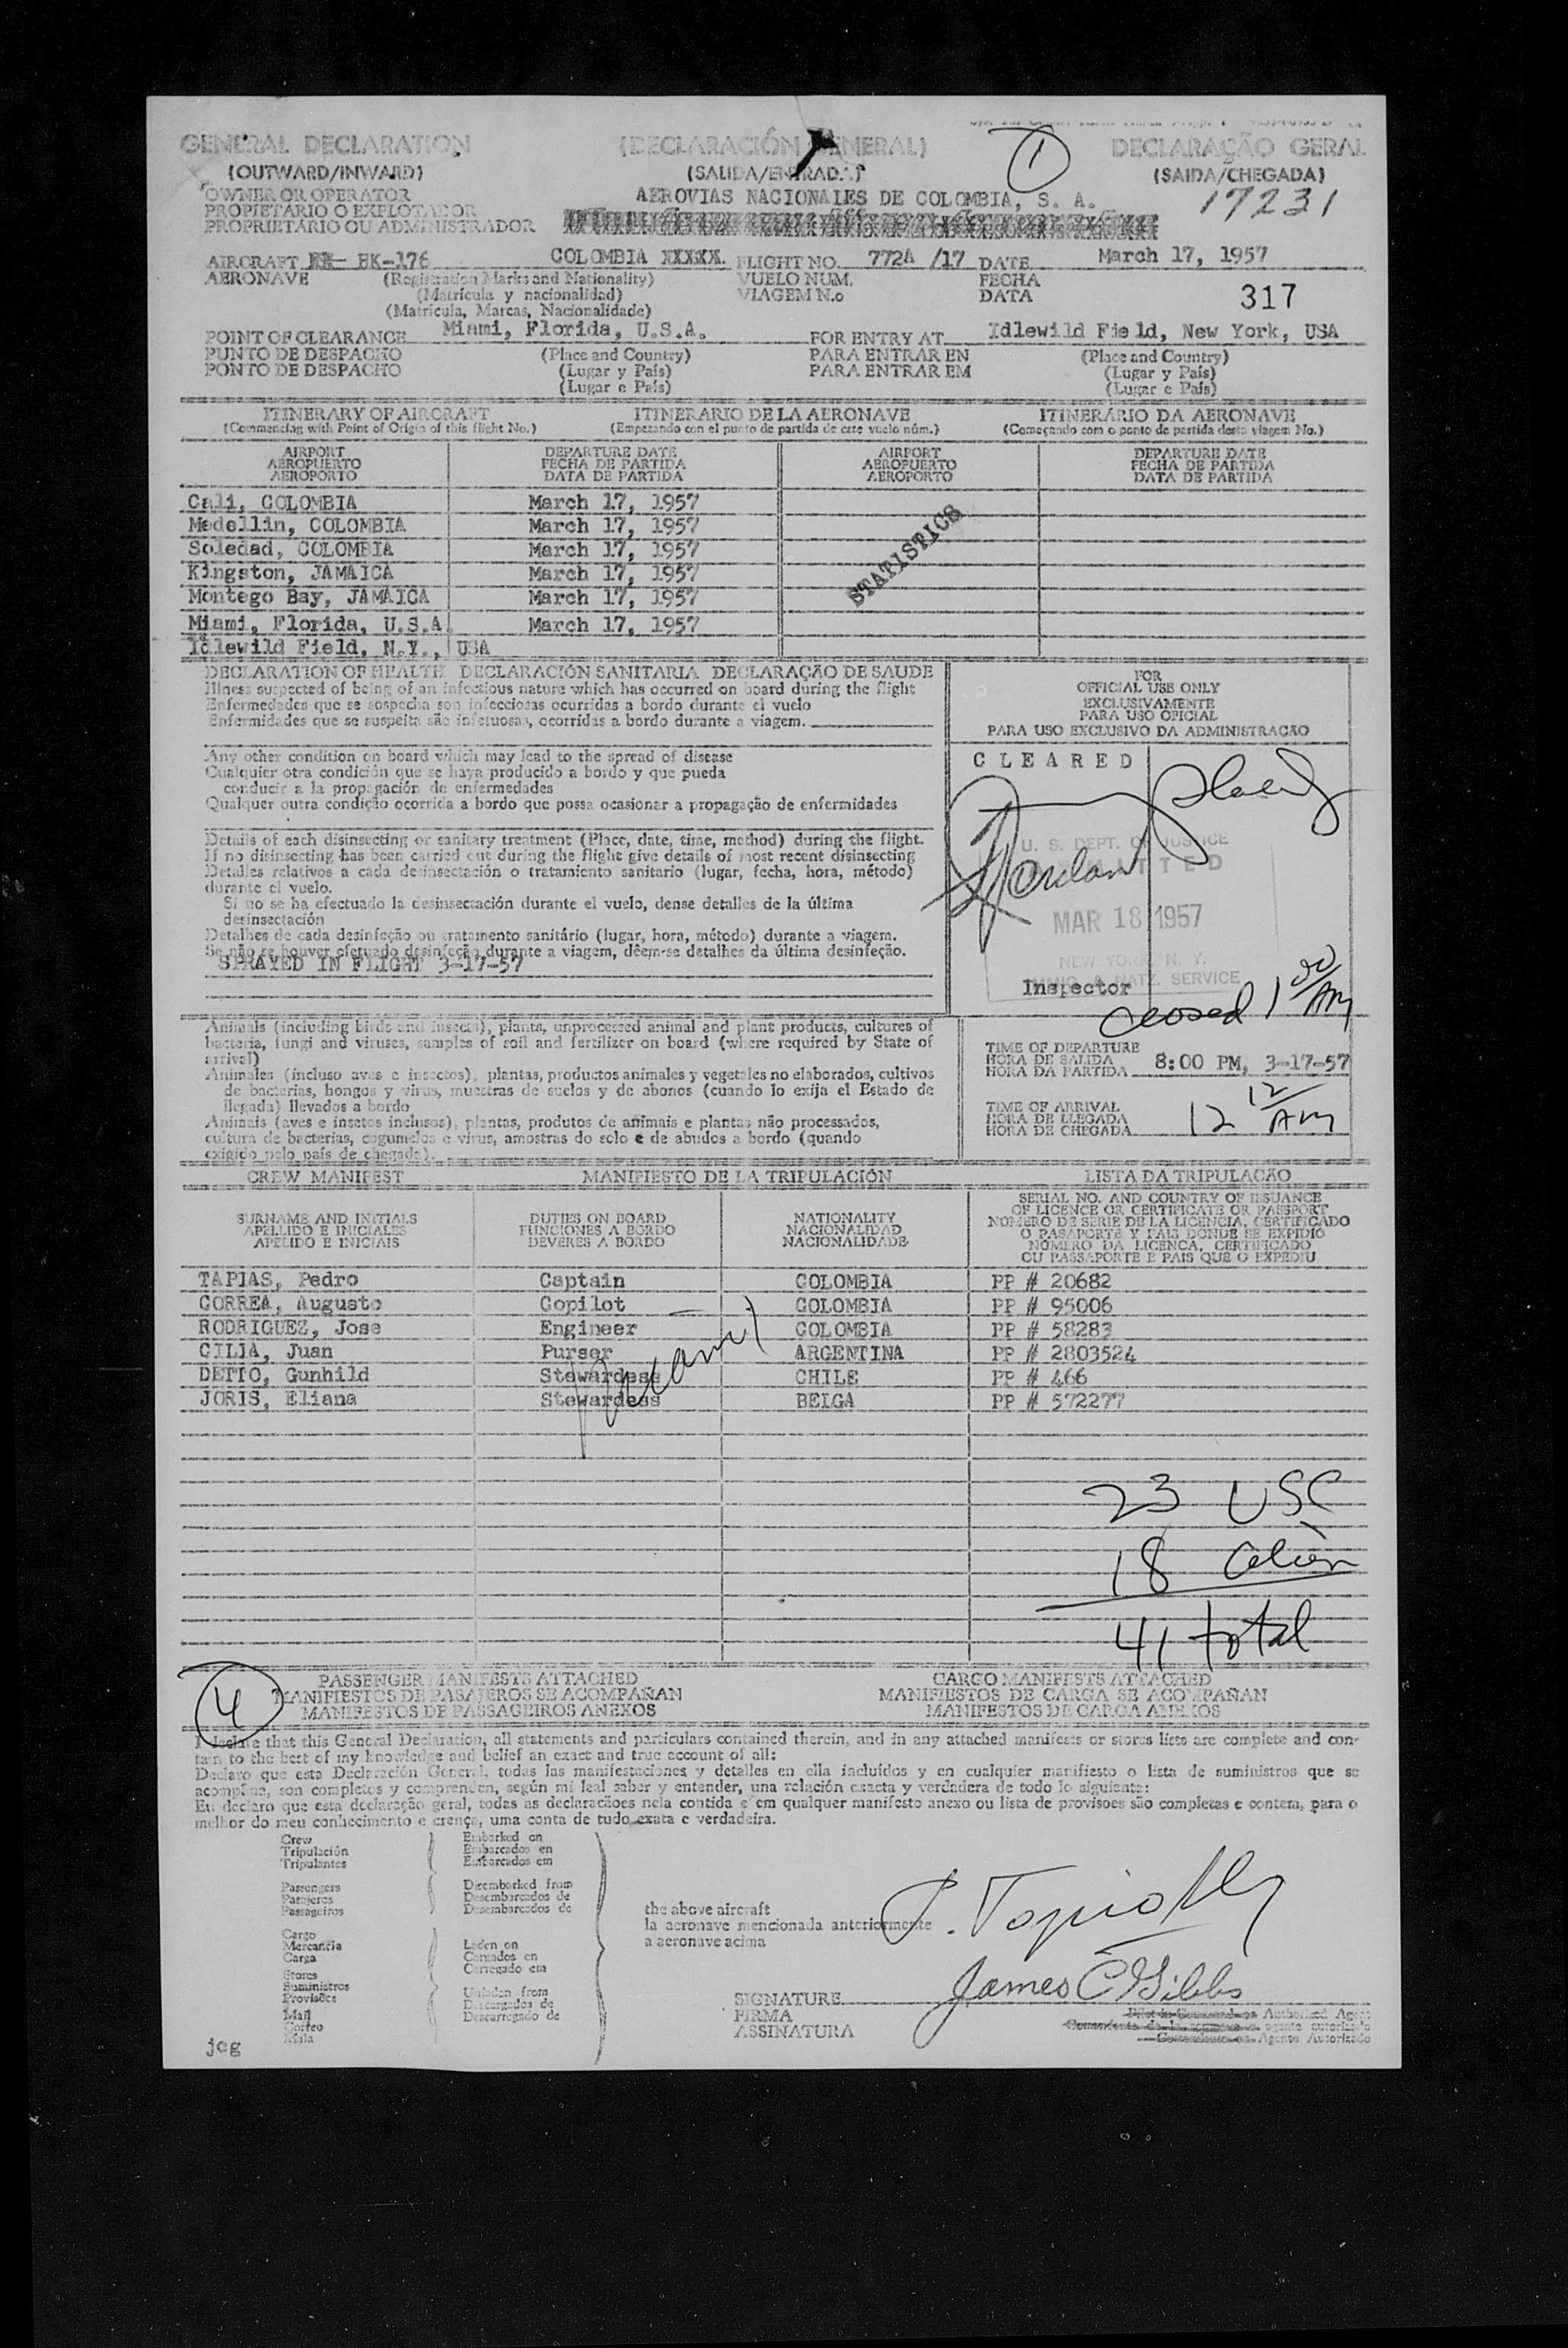 GENERAL DECLARATION
(OUTWARD/INWARD)
(DECLARACIÓN GENERAL)
(SALIDA/ENTRADA)
1
DECLARAÇÃO GERAL
(SAIDA/CHEGADA)
17231
OWNER OR OPERATOR
PROPIETARIO O EXPLOTADOR
PROPRIETÁRIO OU ADMINISTRADOR
AEROVIAS NACIONALES DE COLOMBIA, S. A.
AIRCRAFT HK-176 COLOMBIA XXXXX. FLIGHT NO. 772A /17 DATE March 17, 1957
AERONAVE (Registration Marks and Nationality) VUELO NUM. FECHA
(Matrícula y nacionalidad) VIAGEM N.o DATA 317
(Matrícula, Marcas, Nacionalidade)
POINT OF CLEARANCE Miami, Florida, U.S.A. FOR ENTRY AT Idlewild Field, New York, USA
PUNTO DE DESPACHO (Place and Country) PARA ENTRAR EN (Place and Country)
PONTO DE DESPACHO (Lugar y País) PARA ENTRAR EM (Lugar y País)
(Lugar e País) (Lugar e País)
ITINERARY OF AIRCRAFT ITINERARIO DE LA AERONAVE ITINERÁRIO DA AERONAVE
(Commencing with Point of Origin of this flight No.) (Empezando con el punto de partida de este vuelo núm.) (Começando com o ponto de partida desta viagem No.)
AIRPORT DEPARTURE DATE AIRPORT DEPARTURE DATE
AEROPUERTO FECHA DE PARTIDA AEROPUERTO FECHA DE PARTIDA
AEROPORTO DATA DE PARTIDA AEROPORTO DATA DE PARTIDA
Cali, COLOMBIA March 17, 1957
Medellin, COLOMBIA March 17, 1957
Soledad, COLOMBIA March 17, 1957
Kingston, JAMAICA March 17, 1957
Montego Bay, JAMAICA March 17, 1957
Miami, Florida, U.S.A. March 17, 1957
Idlewild Field, N.Y., USA
STATISTICS
DECLARATION OF HEALTH DECLARACIÓN SANITARIA DECLARAÇÃO DE SAUDE
Illness suspected of being of an infectious nature which has occurred on board during the flight
Enfermedades que se sospecha son infecciosas ocurridas a bordo durante el vuelo
Enfermidades que se suspeita são infetuosas, ocorridas a bordo durante a viagem.
Any other condition on board which may lead to the spread of disease
Cualquier otra condición que se haya producido a bordo y que pueda
conducir a la propagación de enfermedades
Qualquer outra condição ocorrida a bordo que possa ocasionar a propagação de enfermidades
Details of each disinsecting or sanitary treatment (Place, date, time, method) during the flight.
If no disinsecting has been carried out during the flight give details of most recent disinsecting
Detalles relativos a cada desinsectación o tratamiento sanitario (lugar, fecha, hora, método)
durante el vuelo.
Si no se ha efectuado la desinsectación durante el vuelo, dense detalles de la última
desinsectación
Detalhes de cada desinfeção ou tratamento sanitário (lugar, hora, método) durante a viagem.
Se não se houver efetuado desinfecção durante a viagem, dêem-se detalhes da última desinfeção.
SPRAYED IN FLIGHT 3-17-57
FOR
OFFICIAL USE ONLY
EXCLUSIVAMENTE
PARA USO OFICIAL
PARA USO EXCLUSIVO DA ADMINISTRACÃO
CLEARED
U. S. DEPT. OF JUSTICE
ADMITTED
MAR 18 1957
NEW YORK, N. Y.
IMMIG. & NATZ. SERVICE
Inspector
closed 1 00/AM
Animals (including birds and insects), plants, unprocessed animal and plant products, cultures of
bacteria, fungi and viruses, samples of soil and fertilizer on board (where required by State of
arrival)
Animales (incluso aves e insectos), plantas, productos animales y vegetales no elaborados, cultivos
de bacterias, hongos y virus, muestras de suelos y de abonos (cuando lo exija el Estado de
llegada) llevados a bordo
Animais (aves e insetos inclusos), plantas, produtos de animais e plantas não processados,
cultura de bacterias, cogumelos e virus, amostras do solo e de abudos a bordo (quando
exigido pelo país de chegada).
TIME OF DEPARTURE
HORA DE SALIDA
HORA DA PARTIDA 8:00 PM, 3-17-57
TIME OF ARRIVAL
HORA DE LLEGADA
HORA DE CHEGADA 12 12/AM
CREW MANIFEST MANIFIESTO DE LA TRIPULACIÓN LISTA DA TRIPULACÃO
SURNAME AND INITIALS
APELLIDO E INICIALES
APELIDO E INICIAIS
DUTIES ON BOARD
FUNCIONES A BORDO
DEVERES A BORDO
NATIONALITY
NACIONALIDAD
NACIONALIDADE
SERIAL NO. AND COUNTRY OF ISSUANCE
OF LICENCE OR CERTIFICATE OR PASSPORT
NÚMERO DE SERIE DE LA LICENCIA, CERTIFICADO
O PASAPORTE Y PAIS DONDE SE EXPIDIÓ
NÚMERO DA LICENCA, CERTIFICADO
OU PASSAPORTE E PAIS QUE O EXPEDIU
TAPIAS, Pedro Captain COLOMBIA PP # 20682
CORREA, Augusto Copilot COLOMBIA PP # 95006
RODRIGUEZ, Jose Engineer COLOMBIA PP # 58283
CILIA, Juan Purser ARGENTINA PP # 2803524
DETTO, Gunhild Stewardess CHILE PP # 466
JORIS, Eliana Stewardess BELGA PP # 572277
23 USC
18 alien
41 total
4
PASSENGER MANIFESTS ATTACHED CARGO MANIFESTS ATTACHED
MANIFIESTOS DE PASAJEROS SE ACOMPAÑAN MANIFIESTOS DE CARGA SE ACOMPAÑAN
MANIFESTOS DE PASSAGEIROS ANEXOS MANIFESTOS DE CARGA ANEXOS
I declare that this General Declaration, all statements and particulars contained therein, and in any attached manifests or stores lists are complete and con-
tain to the best of my knowledge and belief an exact and true account of all:
Declaro que esta Declaración General, todas las manifestaciones y detalles en ella incluídos y en cualquier manifiesto o lista de suministros que se
acompãna, son completos y comprenden, según mi leal saber y entender, una relación exacta y verdadera de todo lo siguiente:
Eu declaro que esta declaração geral, todas as declaracões nela contida e em qualquer manifesto anexo ou lista de provisoes são completas e contem, para o
melhor do meu conhecimento e crença, uma conta de tudo exata e verdadeira.
Crew
Tripulación
Tripulantes
Embarked on
Embarcados en
Embarcados em
Passengers
Pasajeros
Passageiros
Disembarked from
Desembarcados de
Desembarcados de
the above aircraft
la aeronave mencionada anteriormente
a aeronave acima
Cargo
Mercancía
Carga
Laden on
Cargados en
Carregado em
Stores
Suministros
Provisões
Unladen from
Descargados de
Descarregado de
Mail
Correo
Mala
SIGNATURE James C Gibbs
FIRMA
ASSINATURA
Pilot in Command or Authorized Agent
Comandante de la aeronave o agente autorizado
Comandante ou Agente Autorizado
jcg